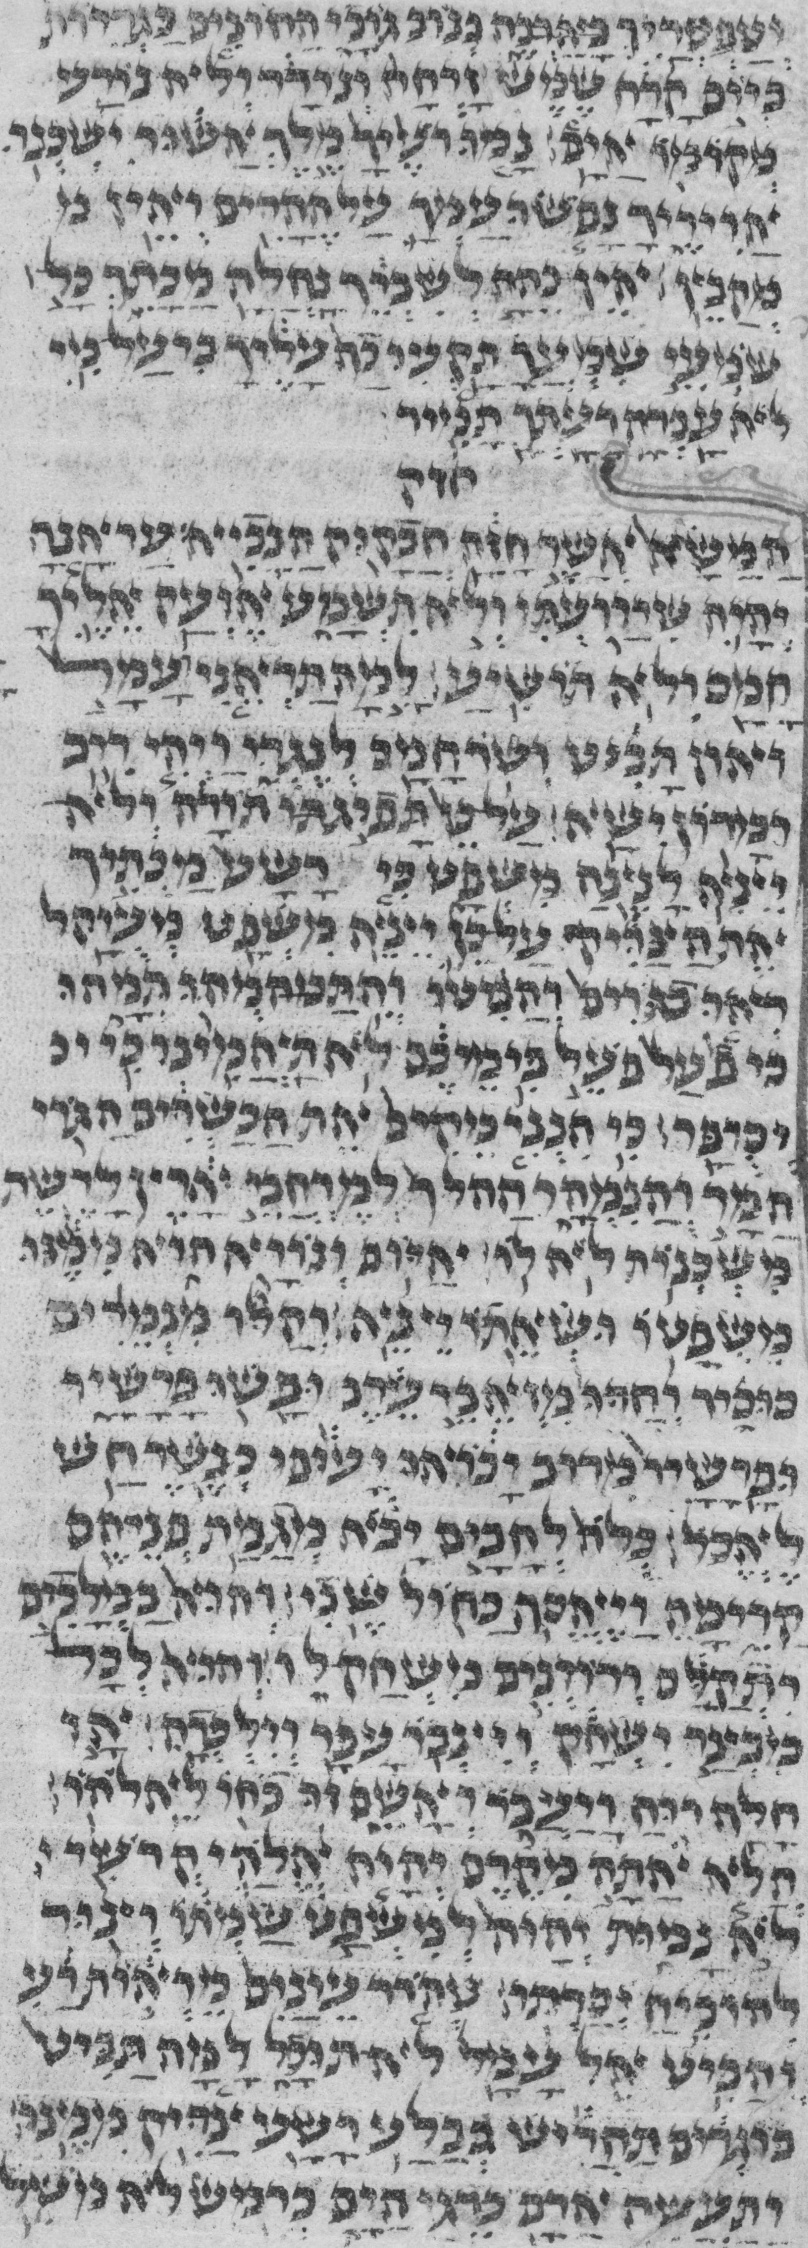 וטפסריך כארבה כגוב גובי החונים בגדרות
ביום קרה שמש זרחה ונודד ולא נודע
מקומו אים נמו רעיך מלך אשור ישכנו
אדיריך נפשו עמך על ההרים ואין מ
מקבץ אין כהה לשברך נחלה מכתך כל
שמעי שמעך תקעו כף עליך כי על מי
לא עברה רעתך תמיד
חזק
המשא אשר חזה חבקוק הנביא עד אנה
יהוה שועתי ולא תשמע אזעק אליך
חמס ולא תושיע למה תראני עמל
ואון תביט ושד חמס לנגדי ויהי ריב
ומדון ישא על כן תפוג תורה ולא
יצא לנצח משפט כי רשע מכתיר
את הצדיק על כן יצא משפט מעוקל
ראו בגוים והביטו והתמהמהו תמהו
כי פעל פעל בימיכם לא תאמינו כי יס
יסופר כי הנני מקים את הכשדים הגוי
המר והנמהר ההלך למרחבי ארץ לרשת
משכנות לא לו אים ונורא הוא ממנו
משפטו ושאתו יצא וקלו מנמרים
סוסיו וחדו מזאבי ערב ופשו פרשיו
ופרשיו מרחוק יבאו יעופו כנשר חש
לאכל כלה לחמס יבא מגמת פניהם
קדימה ויאסף כחול שבי והוא במלכים
יתקלס ורוזנים משחק לו והוא לכל
מבצר ישחק ויצבר עפר וילכדה אז
חלף רוח ויעבר ואשם זו כחו לאלהו
הלא אתה מקדם יהוה אלהי קדשי
לא נמות יהוה למשפט שמתו וצור
להוכיח יסדתו טהור עינים מראות רע
והביט אל עמל לא תוכל למה תביט
בוגדים תחריש בבלע רשע צדיק ממנו
ותעשה אדם כדגי הים כרמש לא משל